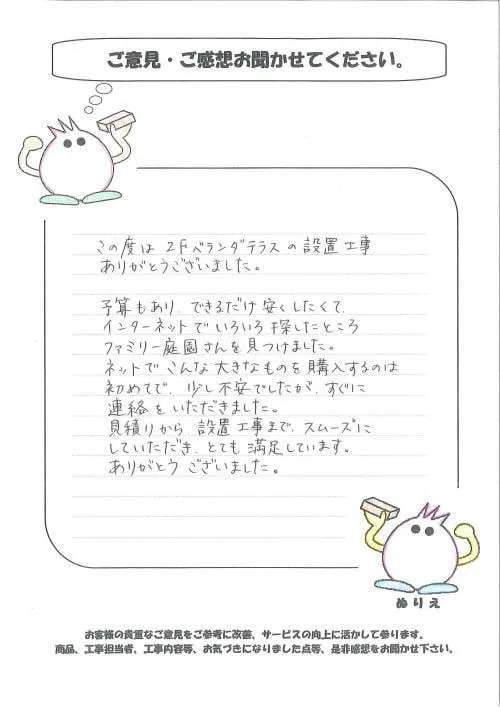 ご意見・ご感想お聞かせてください。
この度は 2Fベランダテラスの設置工事
ありがとうございました。
予算もあり、できるだけ安くしたくて、
インターネットでいろいろ探したところ
ファミリー庭園さんを見つけました。
ネットでこんな大きなものを購入するのは
初めてで、少し不安でしたが、すぐに
連絡をいただきました。
見積りから、設置工事まで、スムーズに
していただき、とても満足しています。
ありがとうございました。
ぬりえ
お客様の貴重なご意見をご参考に改善、サービスの向上に活かして参ります。
商品、工事担当者、工事内容等、お気づきになりました点等、是非感想をお聞かせ下さい。